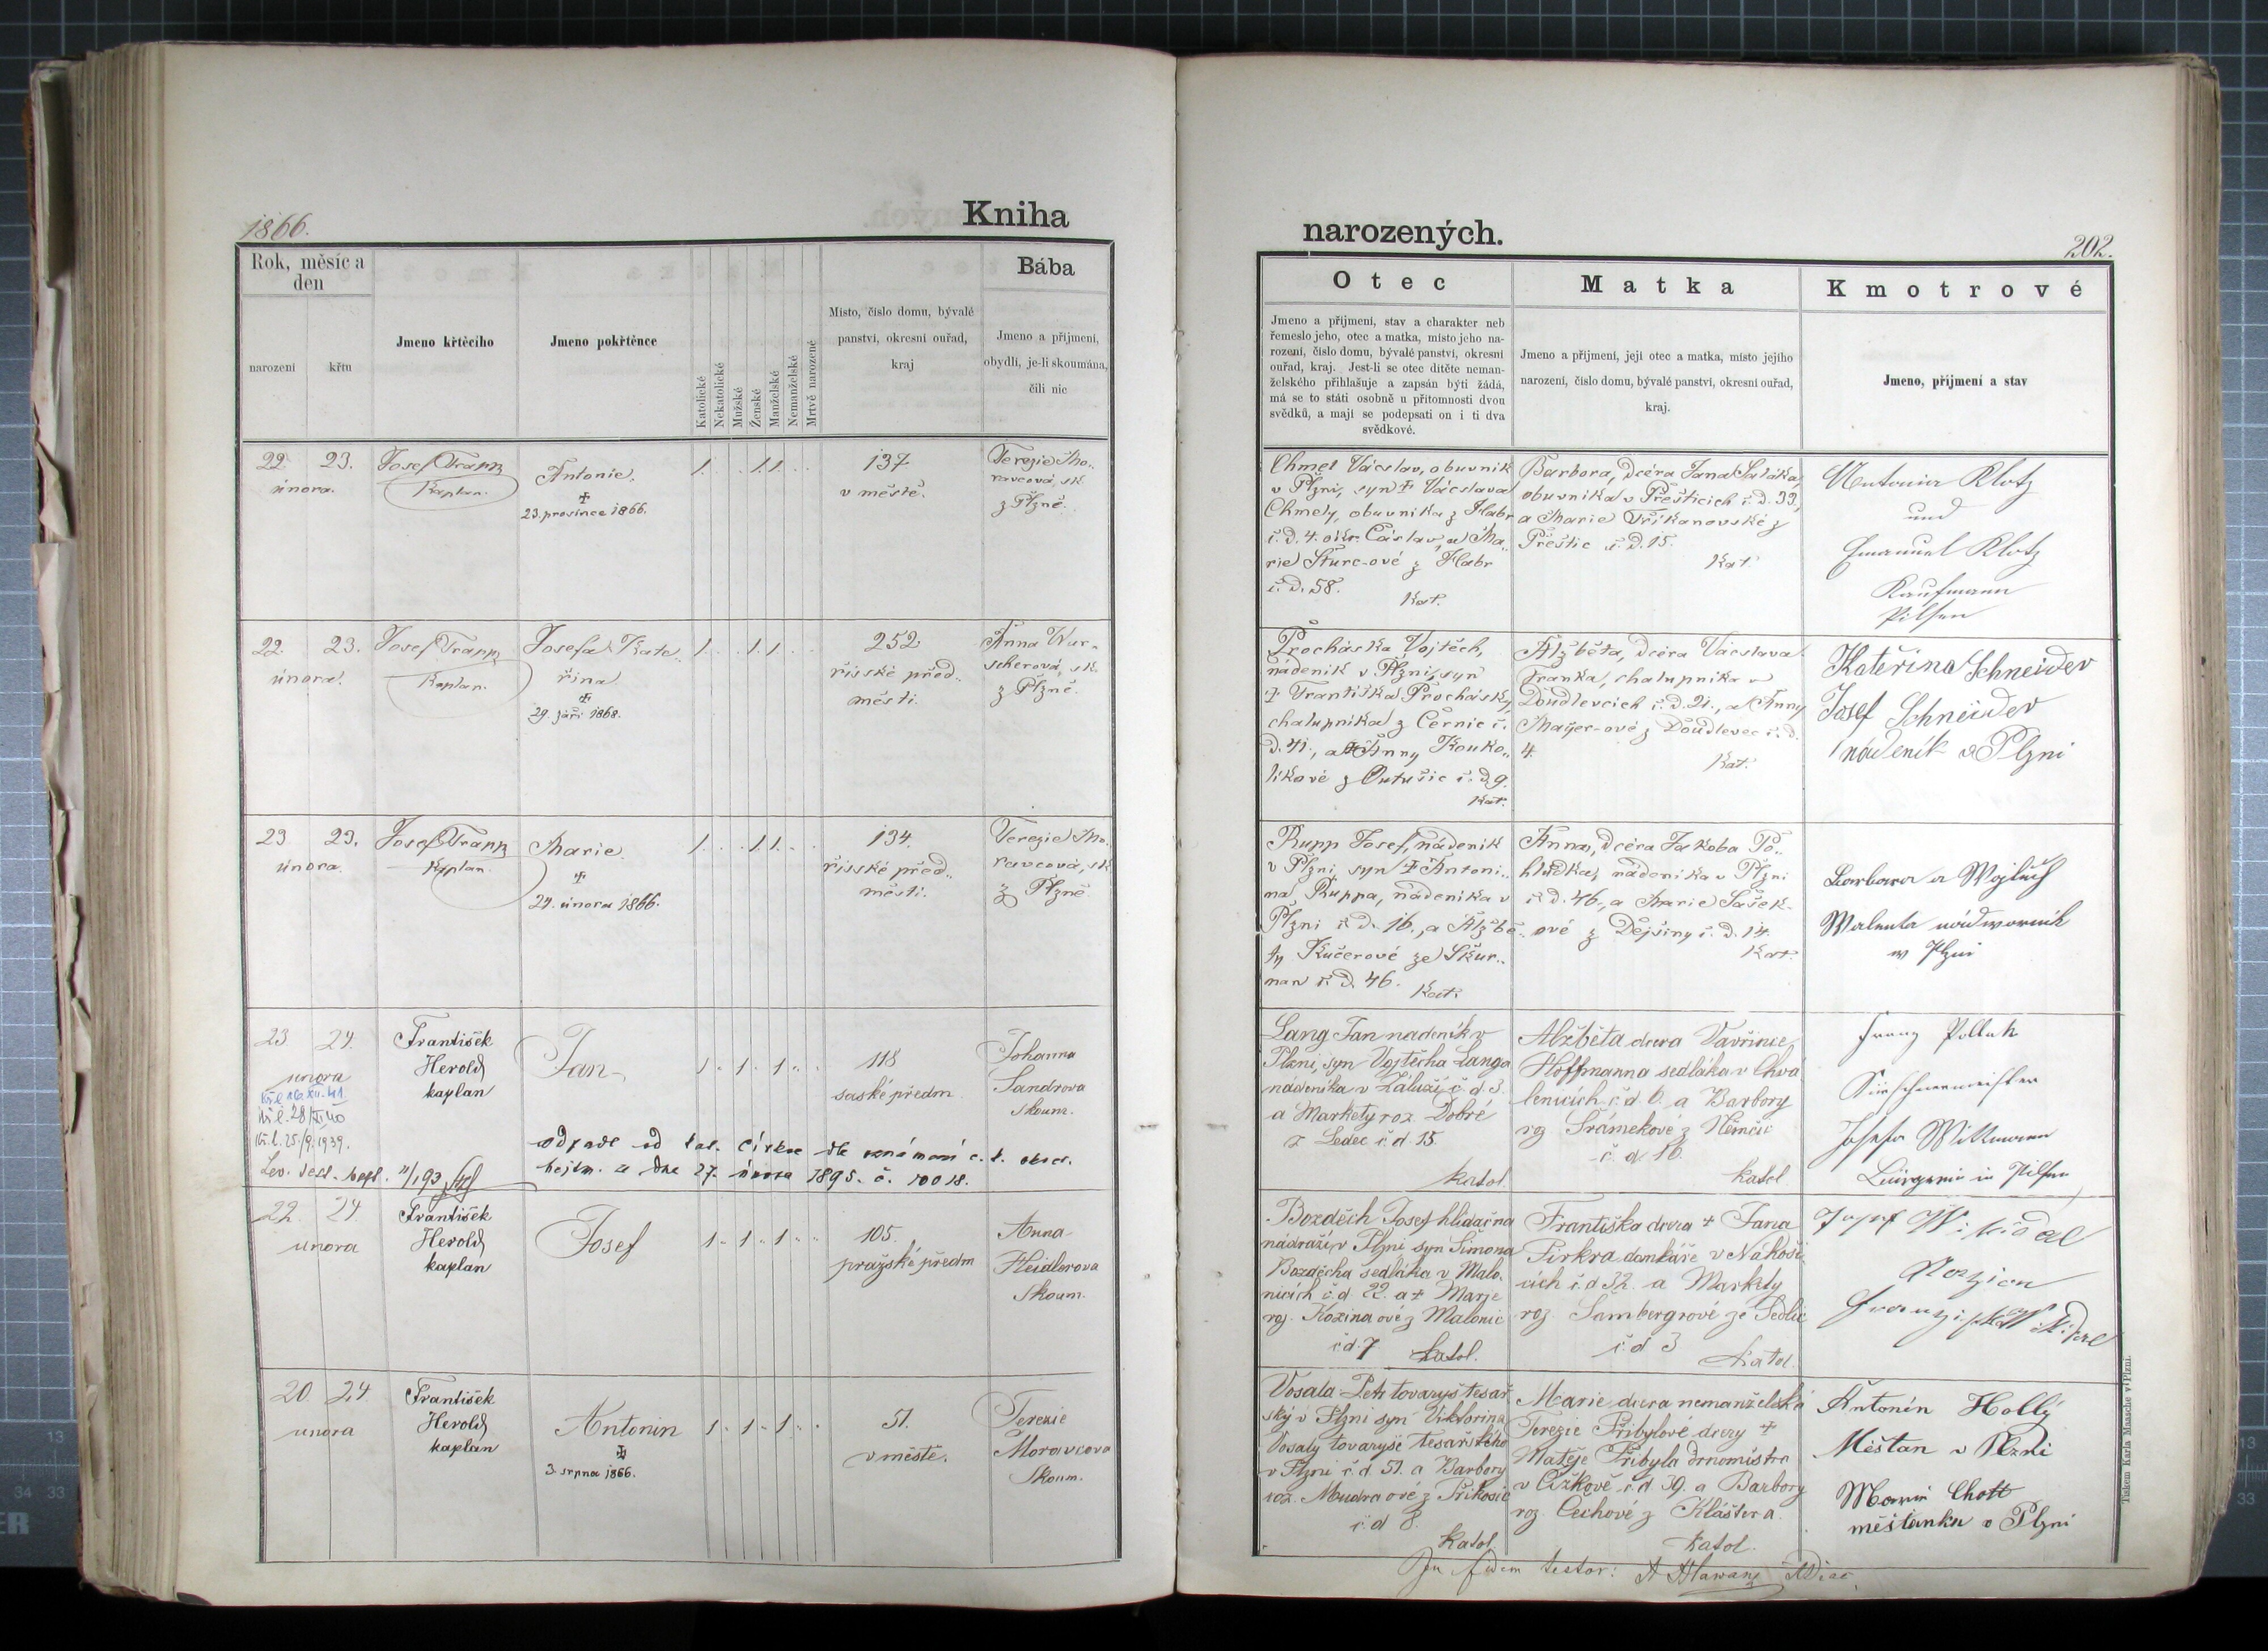 1866.
Kniha
Rok, měsíc a
den
narození
křtu
Jmeno křtěcího
Jmeno pokřtěnce
Katolické
Nekatolické
Mužské
Ženské
Manželské
Nemanželské
Mrtvě narozené
Místo, číslo domu, bývalé
panství, okresní ouřad,
kraj
Bába
Jmeno a příjmení,
obydlí, je-li skoumána,
čili nic
22 23.
února.
Josef Trapp
Kaplan.
Antonie.
23. prosince 1866.
1. 1. 1.
137
v městě.
Terezie Mo-
ravcová, sk.
z Plzně.
22. 23.
února.
Josef Trapp
Kaplan.
Josefa Kate-
řina
29. září 1868.
1. 1. 1.
252
říšské před-
městí.
Anna Wur-
scherová, sk.
z Plzně.
23 23.
února.
Josef Trapp
Kaplan.
Marie.
24. února 1866.
1. 1. 1.
134.
říšské před-
městí.
Terezie Mo-
ravcová, sk
z Plzně
23 24.
února
Kř. l. 25/9. 1939.
František
Herold
kaplan
Jan
1. 1. 1.
118
saské předm
Johanna
Sandrova
Skoum.
odpadl od kat. církve dle oznámení c. k. okr.
hejtm. ze dne 27. února 1895. č. 10018.
22. 24.
února
František
Herold
kaplan
Josef
1. 1. 1
105.
pražské předm
Anna
Heidlerova
Skoum.
20. 24.
února
František
Herold
kaplan
Antonin
3. srpna 1866.
1. 1. 1.
51.
v městě.
Terezie
Moravcova
Skoum.
narozených.
202.
Otec
Jmeno a příjmení, stav a charakter neb
řemeslo jeho, otec a matka, místo jeho na-
rození, číslo domu, bývalé panství, okresní
ouřad, kraj. Jest-li se otec dítěte neman-
želského přihlašuje a zapsán býti žádá,
má se to státi osobně u přítomnosti dvou
svědků, a mají se podepsati on i ti dva
svědkové.
Matka
Jmeno a příjmení, její otec a matka, místo jejího
narození, číslo domu, bývalé panství, okresní ouřad,
kraj.
Kmotrové
Jmeno, příjmení a stav
Chmel Václav, obuvník
v Plzni, syn + Václava
Chmely, obuvníka z Habr
č. d. 4. okr. Čáslav, a Ma-
rie Šturc-ové z Habr
č. d. 58.
Kat.
Barbora, dcéra Jana Saláka,
obuvníka v Přešticích č. d. 33,
a Marie Tříkanovské z
Přeštic č. d. 15.
Kat.
Antonia Klotz
und
Emanuel Klotz
Kaufmann
Pilsen
Procháska Vojtěch,
nádeník v Plzni, syn
+ Františka Prochásky,
chalupníka z Černic č.
d. 41., a + Anny Kouko-
líkové z Outušic č. d. 9.
Kat.
Alžběta, dcéra Václava
Franka, chalupníka v
Doudlevcích č. d. 21., a Anny
Majer-ové z Doudlevec č. d.
4.
Kat.
Kateřina Schneider
Josef Schneider
nádeník v Plzni
Rupp Josef, nádeník
v Plzni, syn + Antoni-
na Ruppa, nádeníka v
Plzni č. d. 16., a Alžbě-
ty Kučerové ze Škur-
nan č. d. 46.
Kat.
Anna, dcéra Jakoba Po-
hludka, nádeníka v Plzni
č. d. 46., a Marie Sašek-
ové z Dejšiny č. d. 14.
Kat.
Barbara a Wojtěch
Walenta nádwornik
w Plzni
Lang Jan nadeník v
Plzni, syn Vojtěcha Langa
nadeníka v Záluží č. d 3.
a Markety roz. Dobré
z Ledec č. d 15.
katol.
Alžběta dcera Vavřince
Hoffmanna sedláka v Chvá
lenicích č. d. 6. a Barbory
roz Šrámekové z Němčic
č. d. 16.
katol
Franz Pollak
Josefa Wittmann
Bürgerin in Pilsen
Bozděch Josef hlídač na
nádraží v Plzni syn Šimona
Bozděcha sedláka v Malo-
nicích č. d 22. a + Marie
roz. Kozina ové z Malonic
č. d. 7 katol.
Františka dcera + Jana
Pirkra domkáře v Nákoši
cích č. d 32. a Markety
roz. Šambergrové ze Sedlic
č. d 3
katol.
Vosala Petr tovaryš tesař
ský v Plzni syn Viktorina
Vosaly tovaryše tesařského
v Plzni č. d. 51. a Barbory
roz. Mudra ové z Příkosic
č. d 8.
katol.
Marie dcera nemanželská
Terezie Přibylové dcery +
Matěje Přibyla drnomistra
v Čížkově č. d. 39. a Barbory
roz. Čechové z Kláštera.
katol.
Antonín Hollý
Měštan v Plzni
Marie Chott
měštanka v Plzni
In fidem testor:
Tiskem Karla Maasche v Plzni.